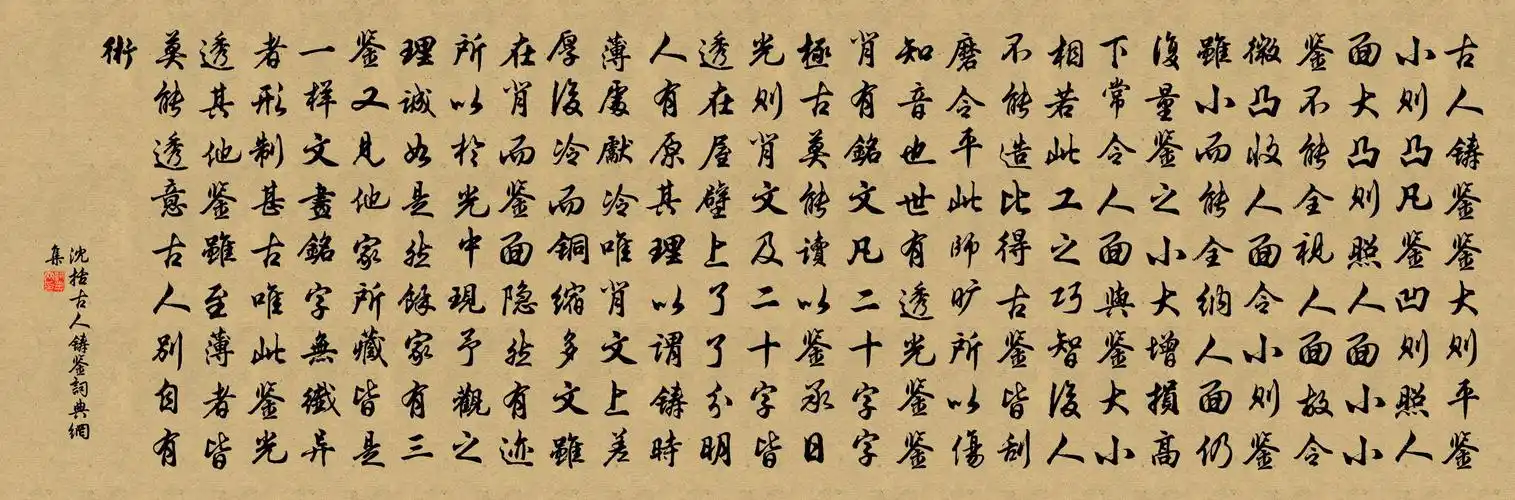 古人鑄鉴鉴大则平鉴
小则凸凡鉴凹则照人
面大凸则照人面小小
鉴不能全視人面故令
微凸收人面令小则鉴
雖小而能全納人面仍
復量鉴之小大增損高
下常令人面與鉴大小
相若此工之巧智後人
不能造比得古鉴皆刮
磨令平此師旷所以傷
知音也世有透光鉴鉴
背有銘文凡二十字字
極古莫能读以鉴承日
光则背文及二十字皆
透在屋壁上了了分明
人有原其理以謂鑄時
薄處獻冷唯背文上差
厚後冷而銅縮多文雖
在背而鉴面隐然有迹
所以於光中現予觀之
理誠如是然餘家有三
鉴又見他家所藏皆是
一樣文畫銘字無纖异
者形制甚古唯此鉴光
透其他鉴雖至薄者皆
莫能透意古人别自有
術
沈括古人鑄鉴詞典網
集